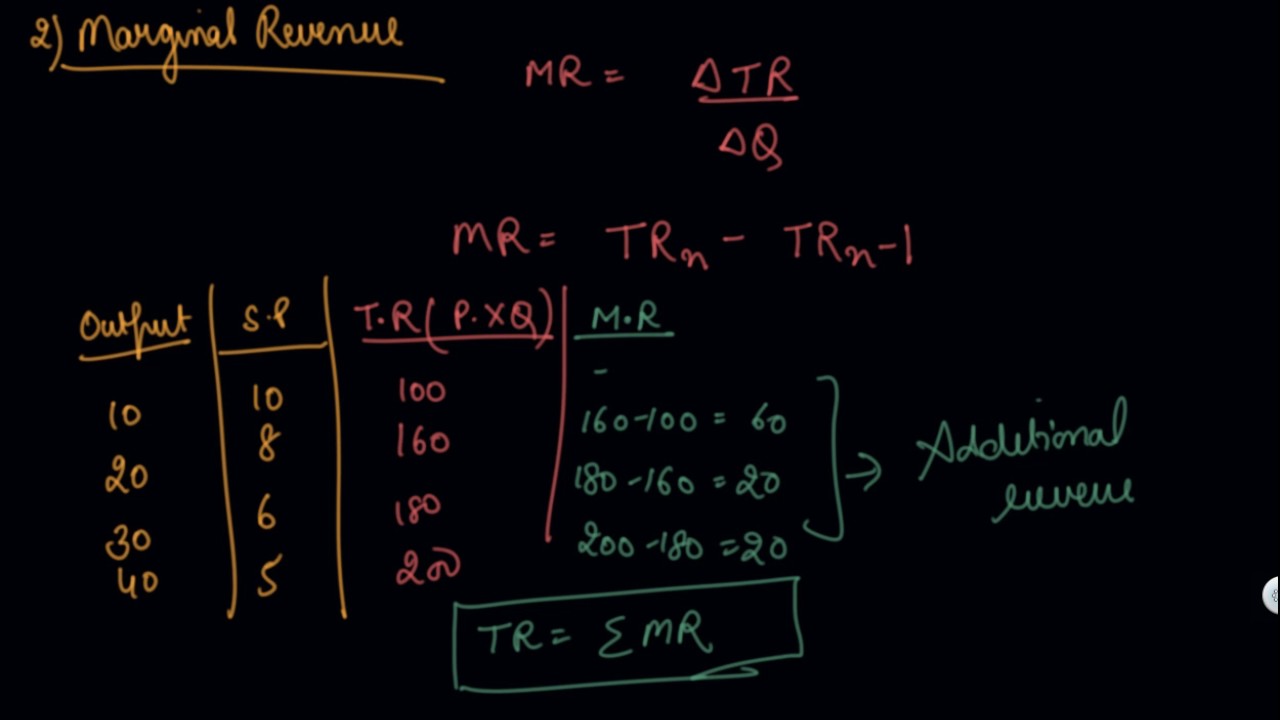 2) Marginal Revenue
MR = ΔTR / ΔQ
MR = TRn - TRn-1
Output | S.P | T.R ( P. X Q) | M.R
10 | 10 | 100 | -
20 | 8 | 160 | 160-100 = 60
30 | 6 | 180 | 180-160 = 20
40 | 5 | 200 | 200-180 = 20
→ Additional
TR = Σ MR